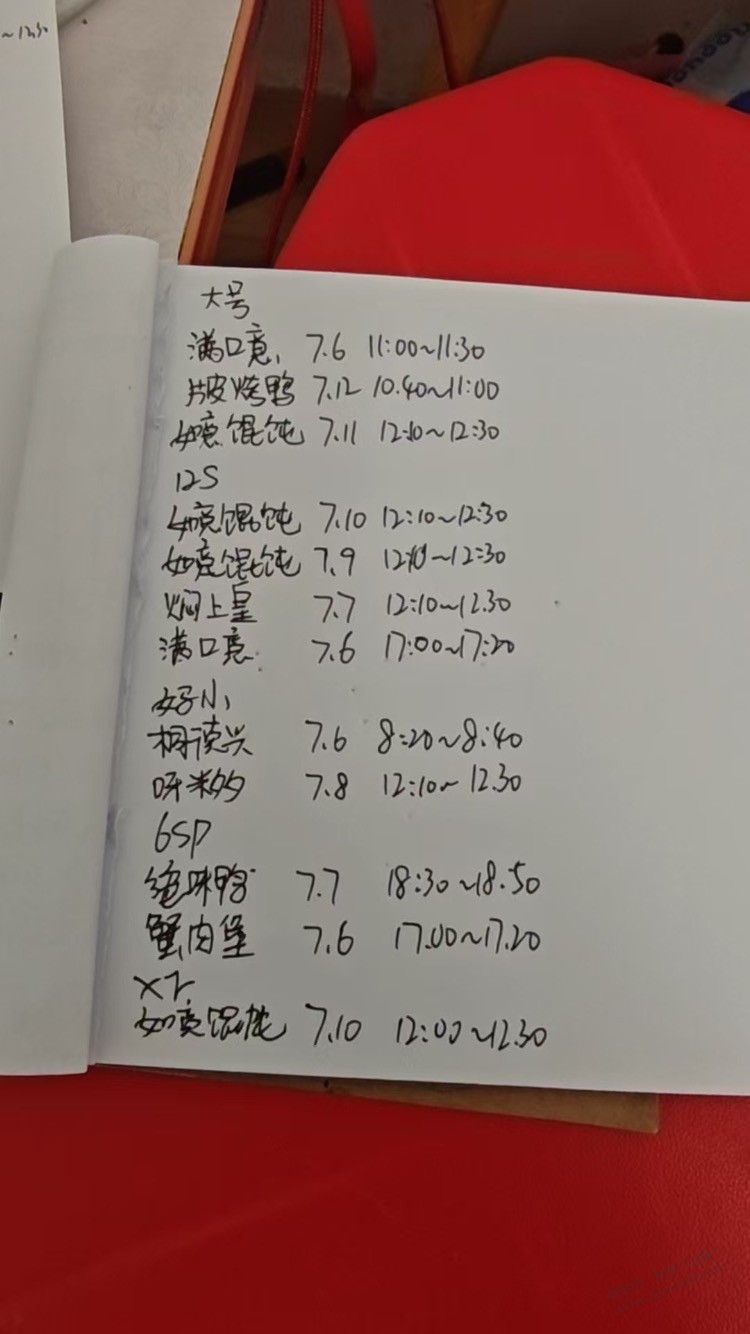 ~12:30
大号
满口意, 7.6 11:00~11:30
片皮烤鸭 7.12 10.40~11:00
如意馄饨 7.11 12:10~12:30
12S
如意馄饨 7.10 12:10~12:30
如意馄饨 7.9 12:10~12:30
焖上皇 7.7 12:10~12.30
满口意. 7.6 17:00~17:20
好小
桐读兴 7.6 8:20~8:40
呀米的 7.8 12:10~12.30
6SP
绝味鸭 7.7 18:30~18.50
蟹肉堡 7.6 17.00~17.20
如意馄饨 7.10 12:00~12.30